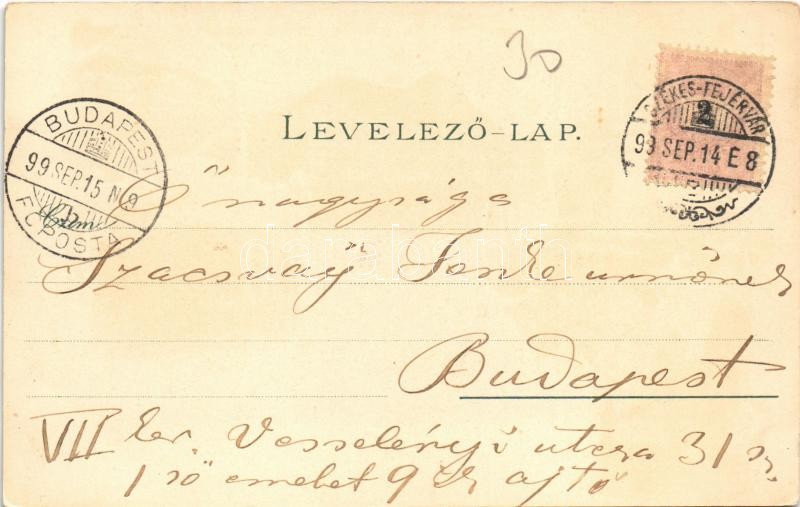 30
LEVELEZŐ-LAP.
BUDAPEST
99 SEP. 15 N 9
FŐPOSTA
SZÉKES-FEJÉRVÁR
2
99 SEP. 14 E 8
Czim
Ő nagysága
Szacsvaÿ Janke urnőnek
Budapest
VII ker. Vesselényi utcza 31 sz.
1 ső emelet 9 es ajtó
darabanth